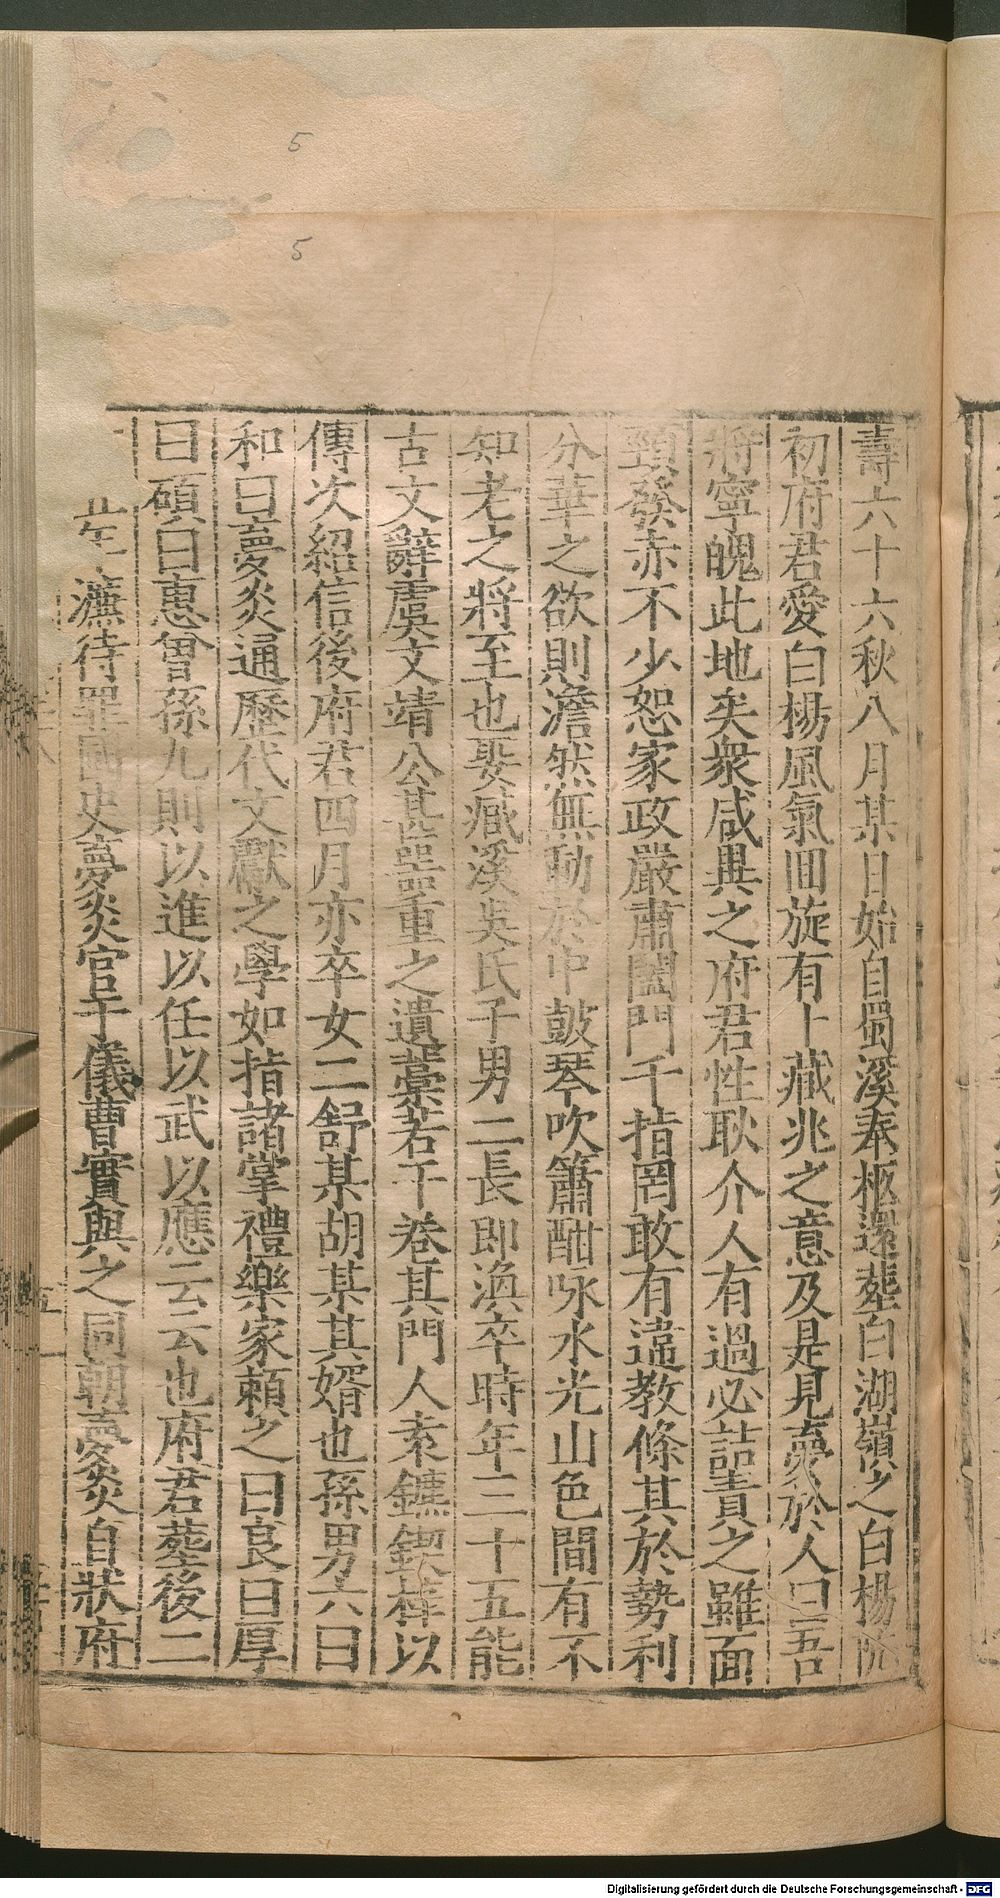 5
5
壽六十六秋八月某日始自蜀溪奉柩還塟白湖嶺之白楊
初府君愛白楊風氣囬旋有卜藏兆之意及是見夣於人曰吾
將寧魄此地矣衆咸異之府君性耿介人有過必詰責之雖面
頸發赤不少恕家政嚴肅闔門千指罔敢有違教條其於勢利
分華之欲則澹然無動於中鼓琴吹簫酣咏水光山色間有不
知老之將至也娶臧溪吳氏子男二長即渙卒時年三十五能
古文辭虞文靖公甚噐重之遺藁若干卷其門人索鑣鍥梓以
傳次紹信後府君四月亦卒女二舒某胡某其婿也孫男六曰
和曰夣炎通歷代文獻之學如指諸掌禮樂家頼之曰良曰厚
曰碩曰惠曾孫九則以進以任以武以應云云也府君塟後二
年濂待罪國史夣炎官于儀曹實與之同朝夣炎自狀府
Digitalisierung gefördert durch die Deutsche Forschungsgemeinschaft - DFG